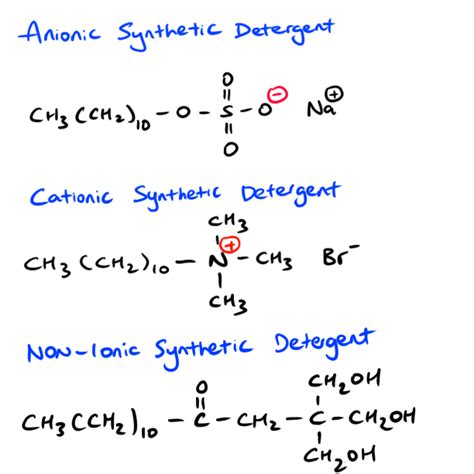 Anionic Synthetic Detergent
O
CH3(CH2)10-O-S-O⊖ Na⊕
O
Cationic Synthetic Detergent
CH3
CH3(CH2)10-N⊕-CH3 Br-
CH3
Non-Ionic Synthetic Detergent
O CH2OH
CH3(CH2)10-C-CH2-C-CH2OH
CH2OH